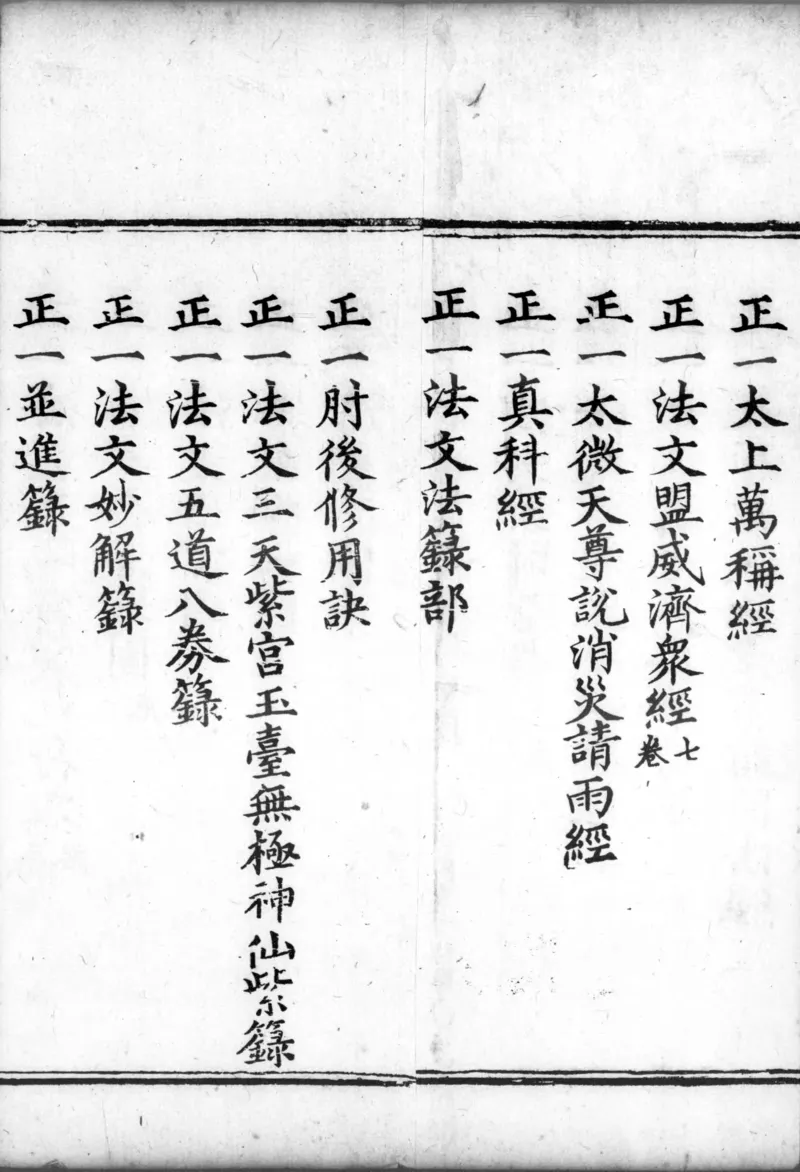 正一太上萬稱經
正一法文盟威濟衆經七卷
正一太微天尊說消災請雨經
正一真科經
正一法文法籙部
正一肘後修用訣
正一法文三天紫宮玉臺無極神仙紫籙
正一法文五道八券籙
正一法文妙解籙
正一並進籙